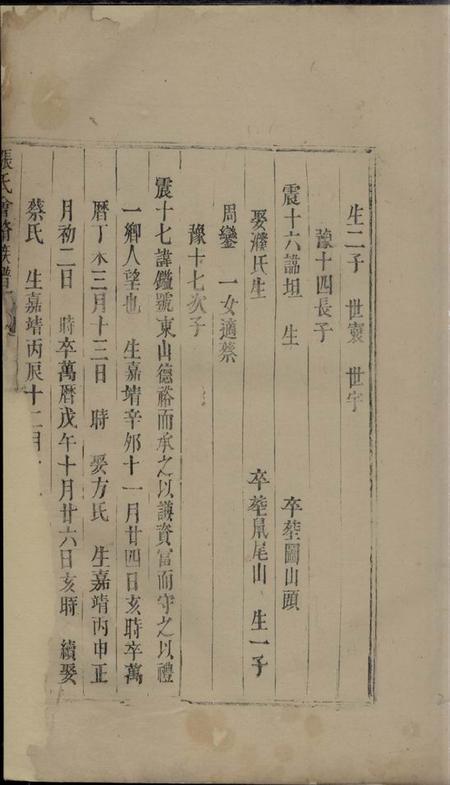 生二子 世寰 世宇
豫十四長子
震十六諱坦 生 卒塟圖山頭
娶濮氏生 卒塟鼠尾山 生一子
周鑾 一女適蔡
豫十七次子
震十七諱鑑號東山德裕而承之以謙資富而守之以禮
一鄉人望也 生嘉靖辛夘十一月廿四日亥時卒萬
曆丁未三月十三日 時 娶方氏 生嘉靖丙申正
月初二日 時卒萬曆戊午十月廿六日亥時 續娶
蔡氏 生嘉靖丙辰十二月
張氏會脩族譜